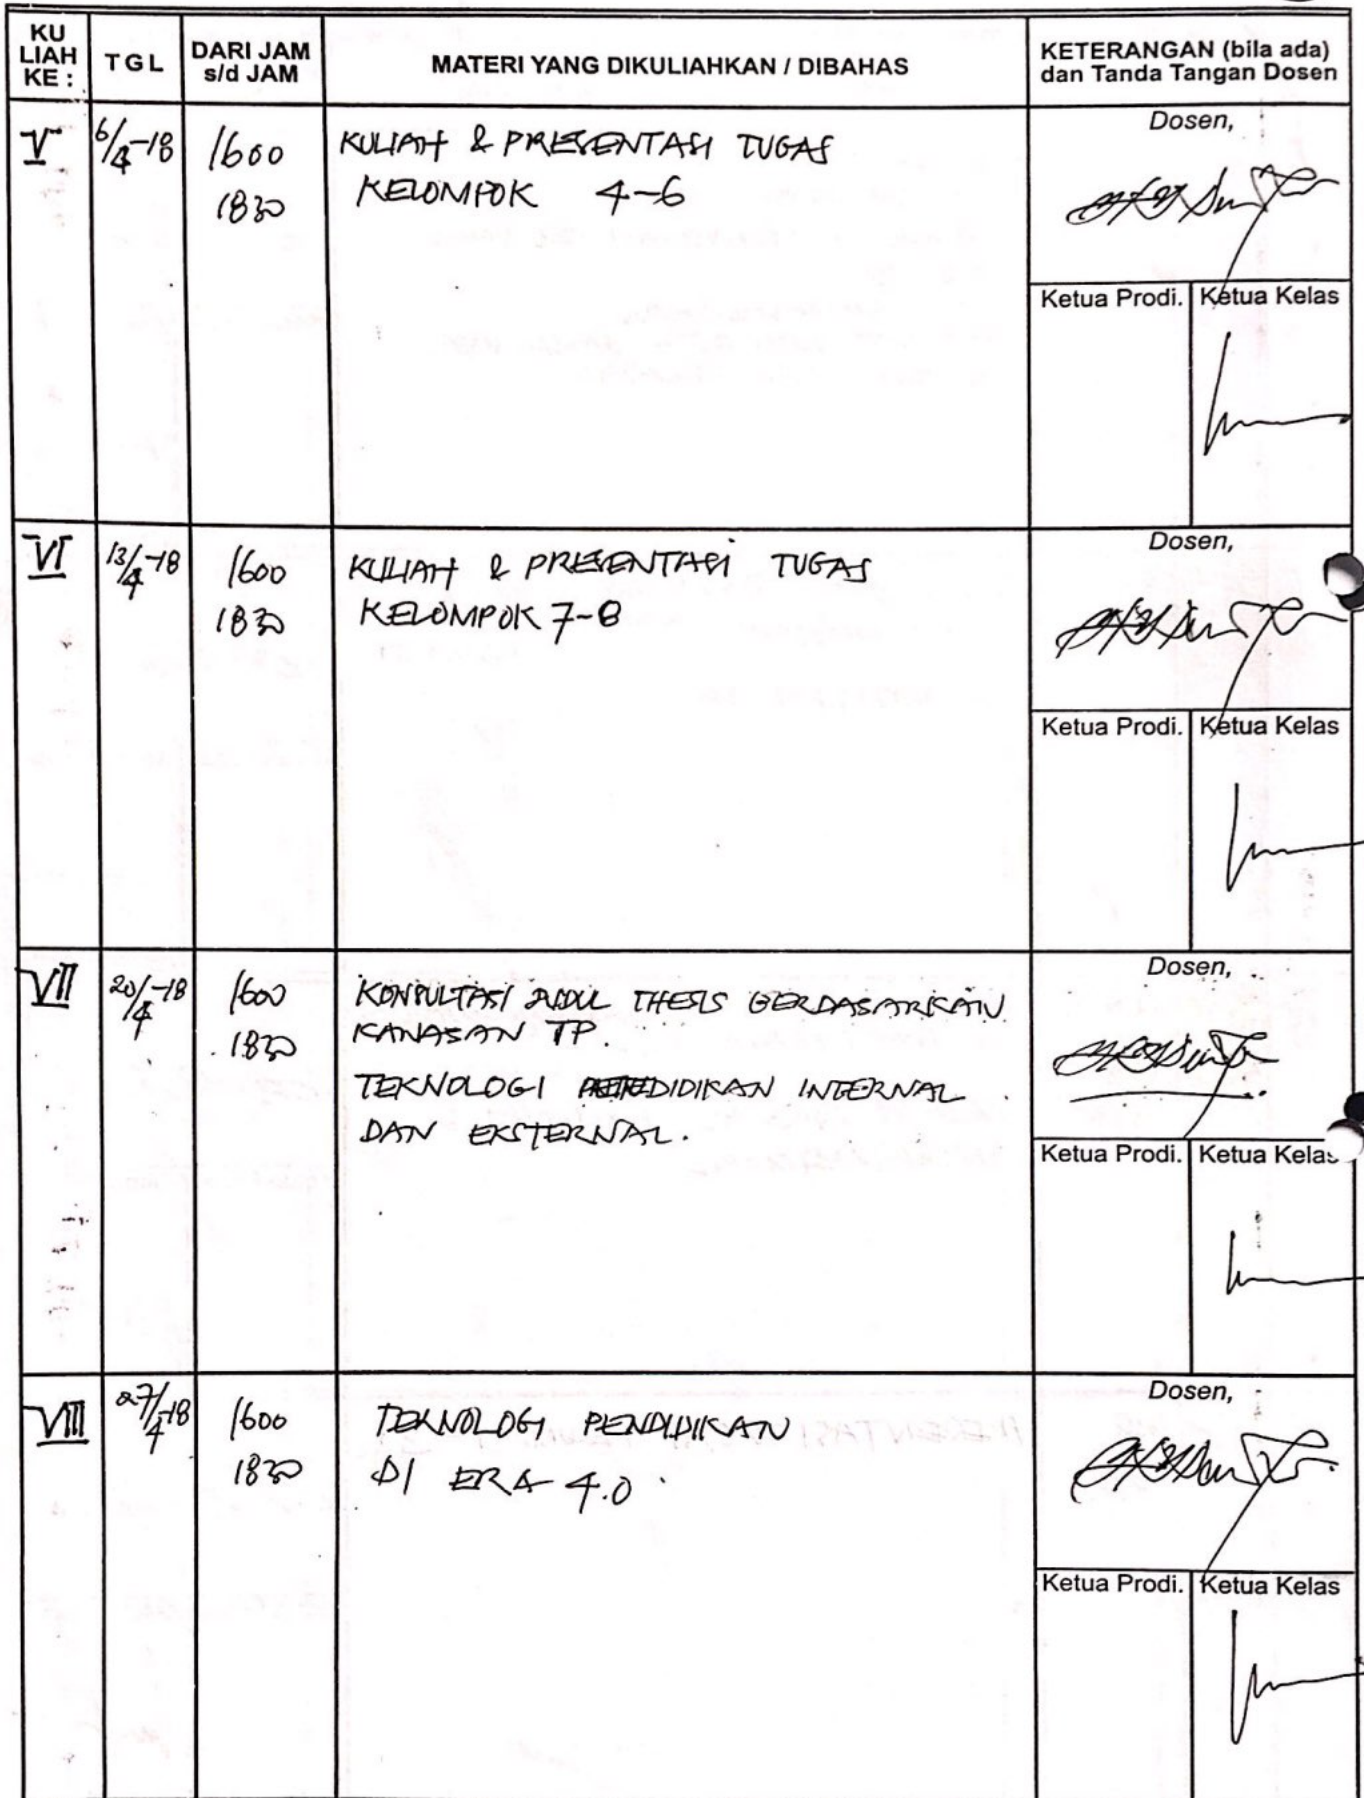 KU
LIAH
KE :
TGL
DARI JAM
s/d JAM
MATERI YANG DIKULIAHKAN / DIBAHAS
KETERANGAN (bila ada)
dan Tanda Tangan Dosen
V 6/4-18 1600 KULIAH & PRESENTASI TUGAS
1830 KELOMPOK 4-6
Dosen,
Ketua Prodi. Ketua Kelas
VI 13/4-18 1600 KULIAH & PRESENTASI TUGAS
1830 KELOMPOK 7-8
Dosen,
Ketua Prodi. Ketua Kelas
VII 20/4-18 1600 KONSULTASI JUDUL THESIS BERDASARKAN
1830 KAWASAN TP.
TEKNOLOGI PENDIDIKAN INTERNAL
DAN EKSTERNAL.
Dosen,
Ketua Prodi. Ketua Kelas
VIII 27/4-18 1600 TEKNOLOGI PENDIDIKAN
1830 DI ERA 4.0
Dosen,
Ketua Prodi. Ketua Kelas